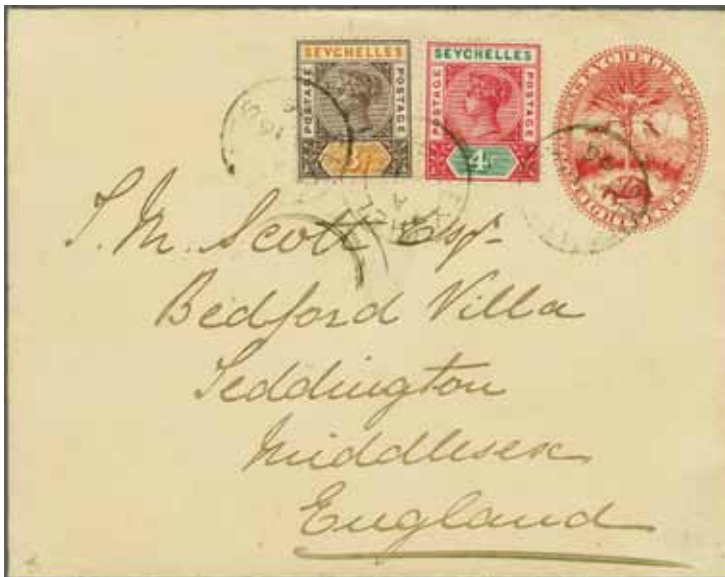 SEYCHELLES
POSTAGE POSTAGE
SEYCHELLES
POSTAGE POSTAGE
4
SEYCHELLES
EIGHT CENTS
T. M. Scott Esqr
Bedford Villa
Teddington
Middlesex
England